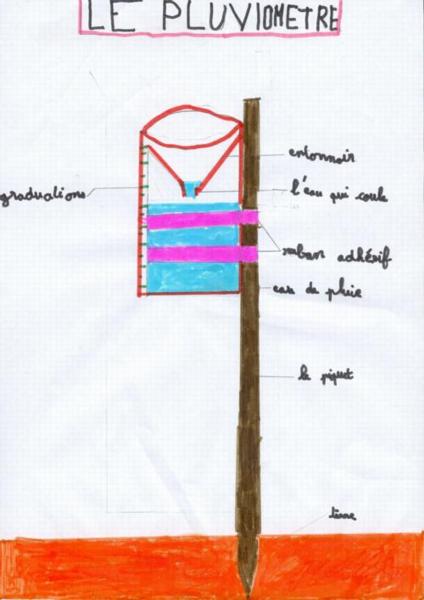 LE PLUVIOMETRE
entonnoir
graduations
l'eau qui coule
ruban adhésif
eau de pluie
le piquet
terre